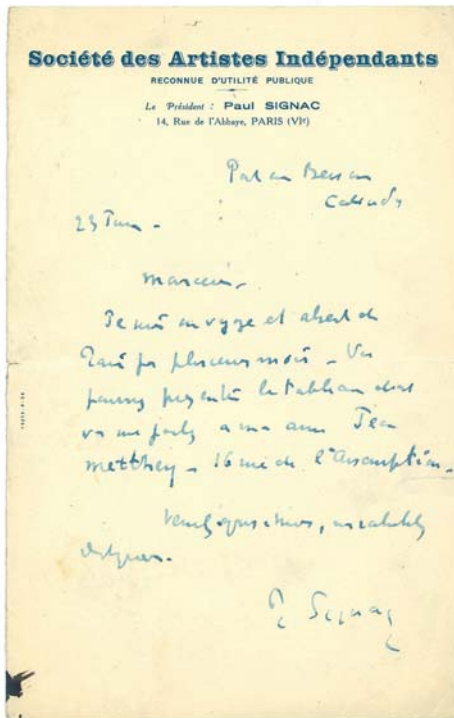 Société des Artistes Indépendants
RECONNUE D'UTILITÉ PUBLIQUE
Le Président : Paul SIGNAC
14, Rue de l'Abbaye, PARIS (VIe)
Port en Bessin
Calvados
23 Juin -
Monsieur,
Je suis en voyage et absent de
Paris pr plusieurs mois - Vs
pourrez présenter le tableau dont
vs me parlez a mon ami Jean
Metthey - 16 rue de l'Assomption -
Veuillez agréer, mes salutations
P Signac